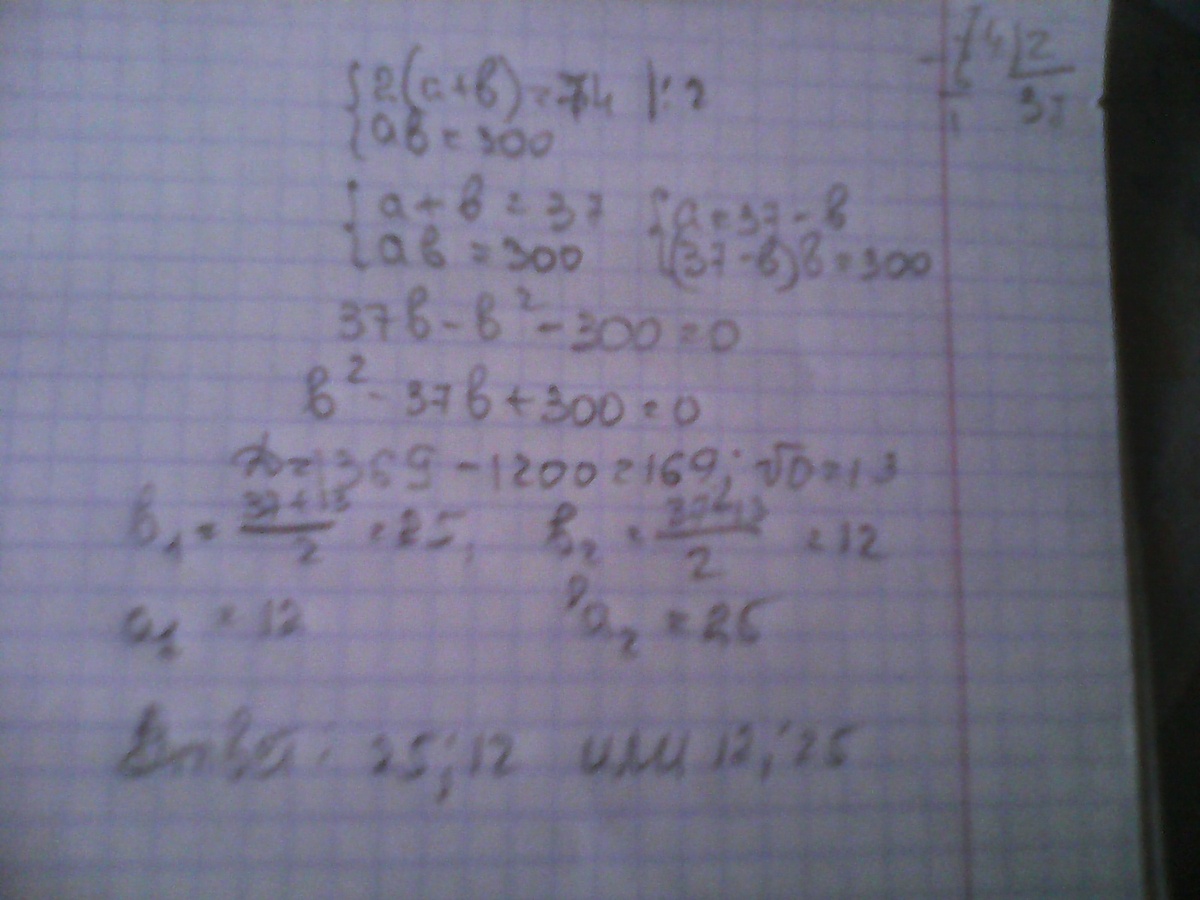 {2(a+b)=74 |:2
{ab=300
{a+b=37 {a=37-b
{ab=300 {(37-b)b=300
37b-b²-300=0
b²-37b+300=0
D=1369-1200=169; √D=13
b₁=(37+13)/2=25, b₂=(37-13)/2=12
a₁=12 a₂=25
Ответ: 25;12 или 12;25
-74|2
6 37
1